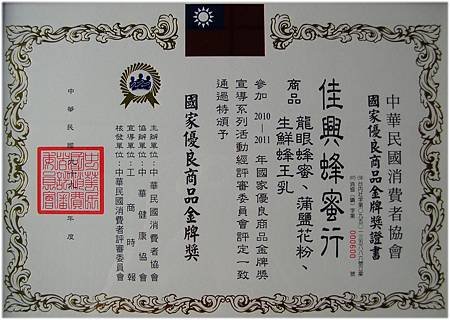 中華民國消費者協會
國家優良商品金牌獎證書
000600 號
佳興蜂蜜行
商品 龍眼蜂蜜、蒲鹽花粉、
生鮮蜂王乳
參加 2010-2011 年國家優良商品金牌獎
宣導系列活動經評審委員會評定一致
通過特頒予
國家優良商品金牌獎
主辦單位：中華民國消費者協會
協辦單位：中華健康協會
宣導單位：工商時報
核發單位：中華民國消費者評審委員會
中華民國 年度